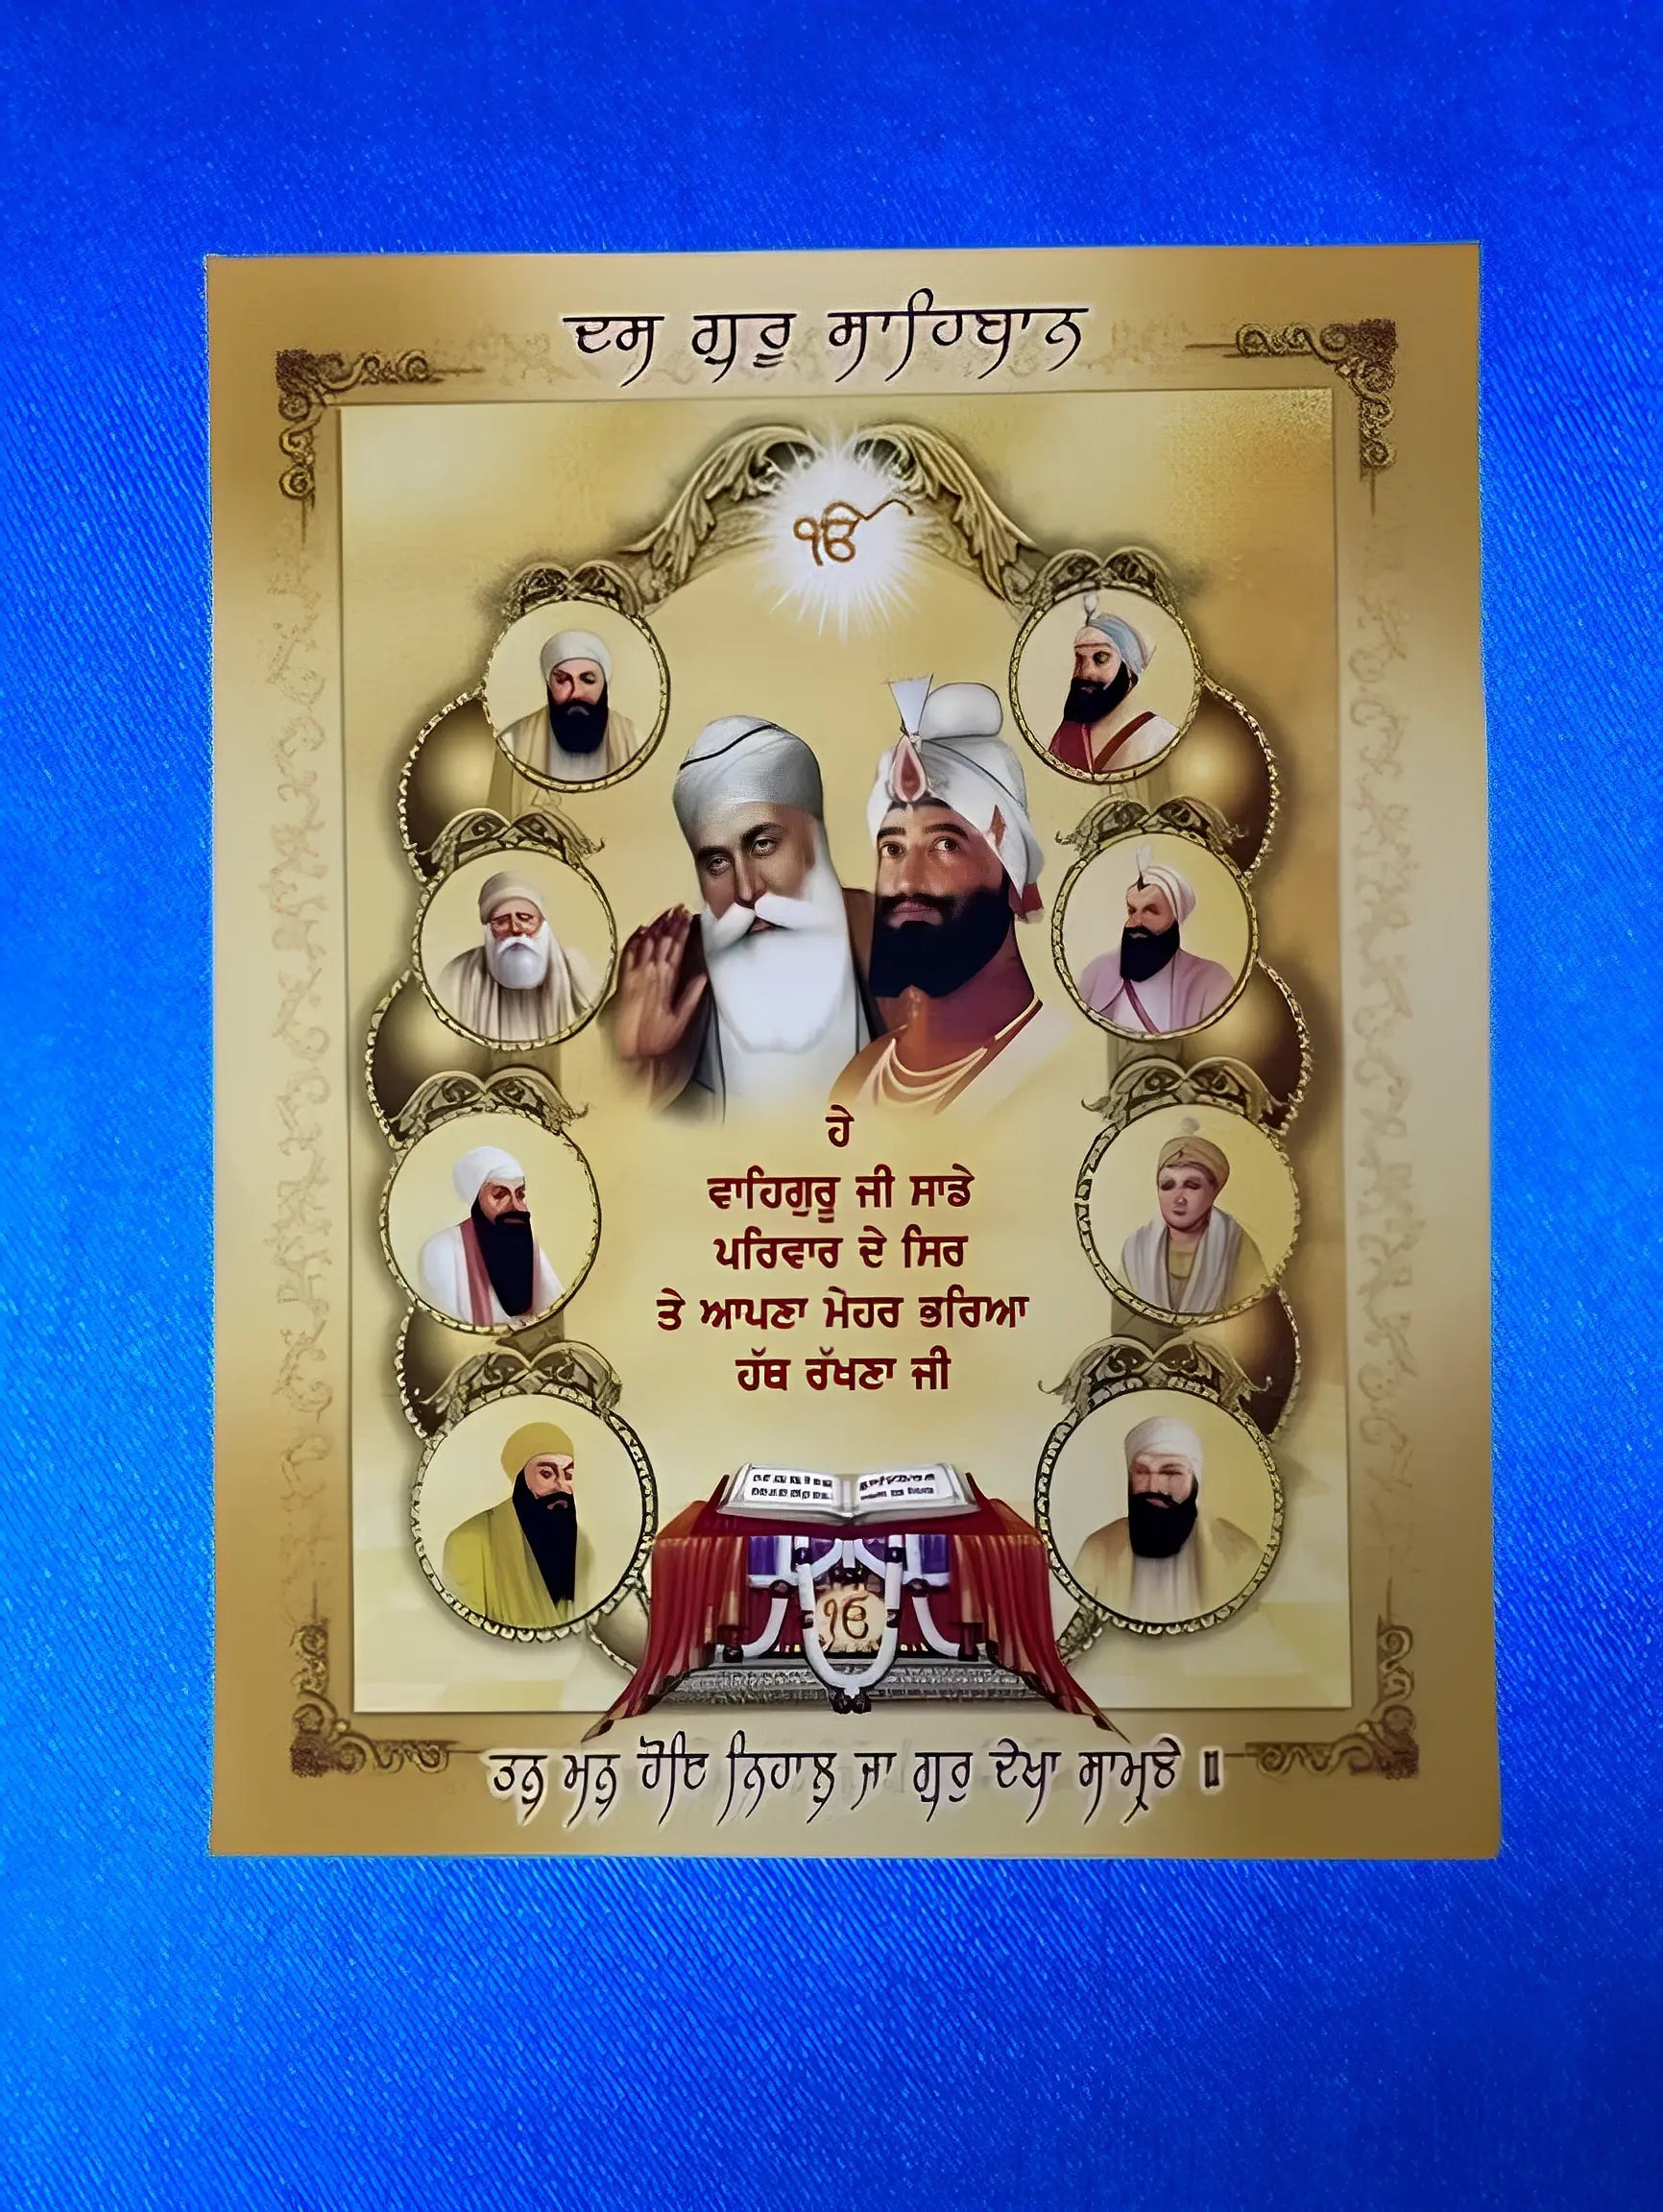 ਦਸ ਗੁਰੂ ਸਾਹਿਬਾਨ
ੴ
ਹੇ
ਵਾਹਿਗੁਰੂ ਜੀ ਸਾਡੇ
ਪਰਿਵਾਰ ਦੇ ਸਿਰ
ਤੇ ਆਪਣਾ ਮੇਹਰ ਭਰਿਆ
ਹੱਥ ਰੱਖਣਾ ਜੀ
ੴ
ਤਨੁ ਮਨੁ ਹੋਇ ਨਿਹਾਲੁ ਜਾ ਗੁਰੁ ਦੇਖਾ ਸਾਮ੍ਹਣੇ ॥